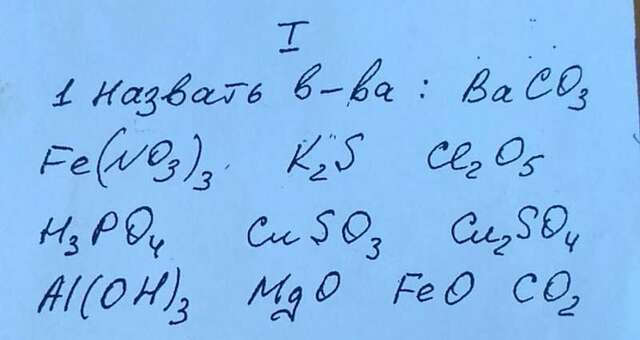 I
1 Назвать в-ва: BaCO3
Fe(NO3)3 K2S Cl2O5
H3PO4 CuSO3 Cu2SO4
Al(OH)3 MgO FeO CO2